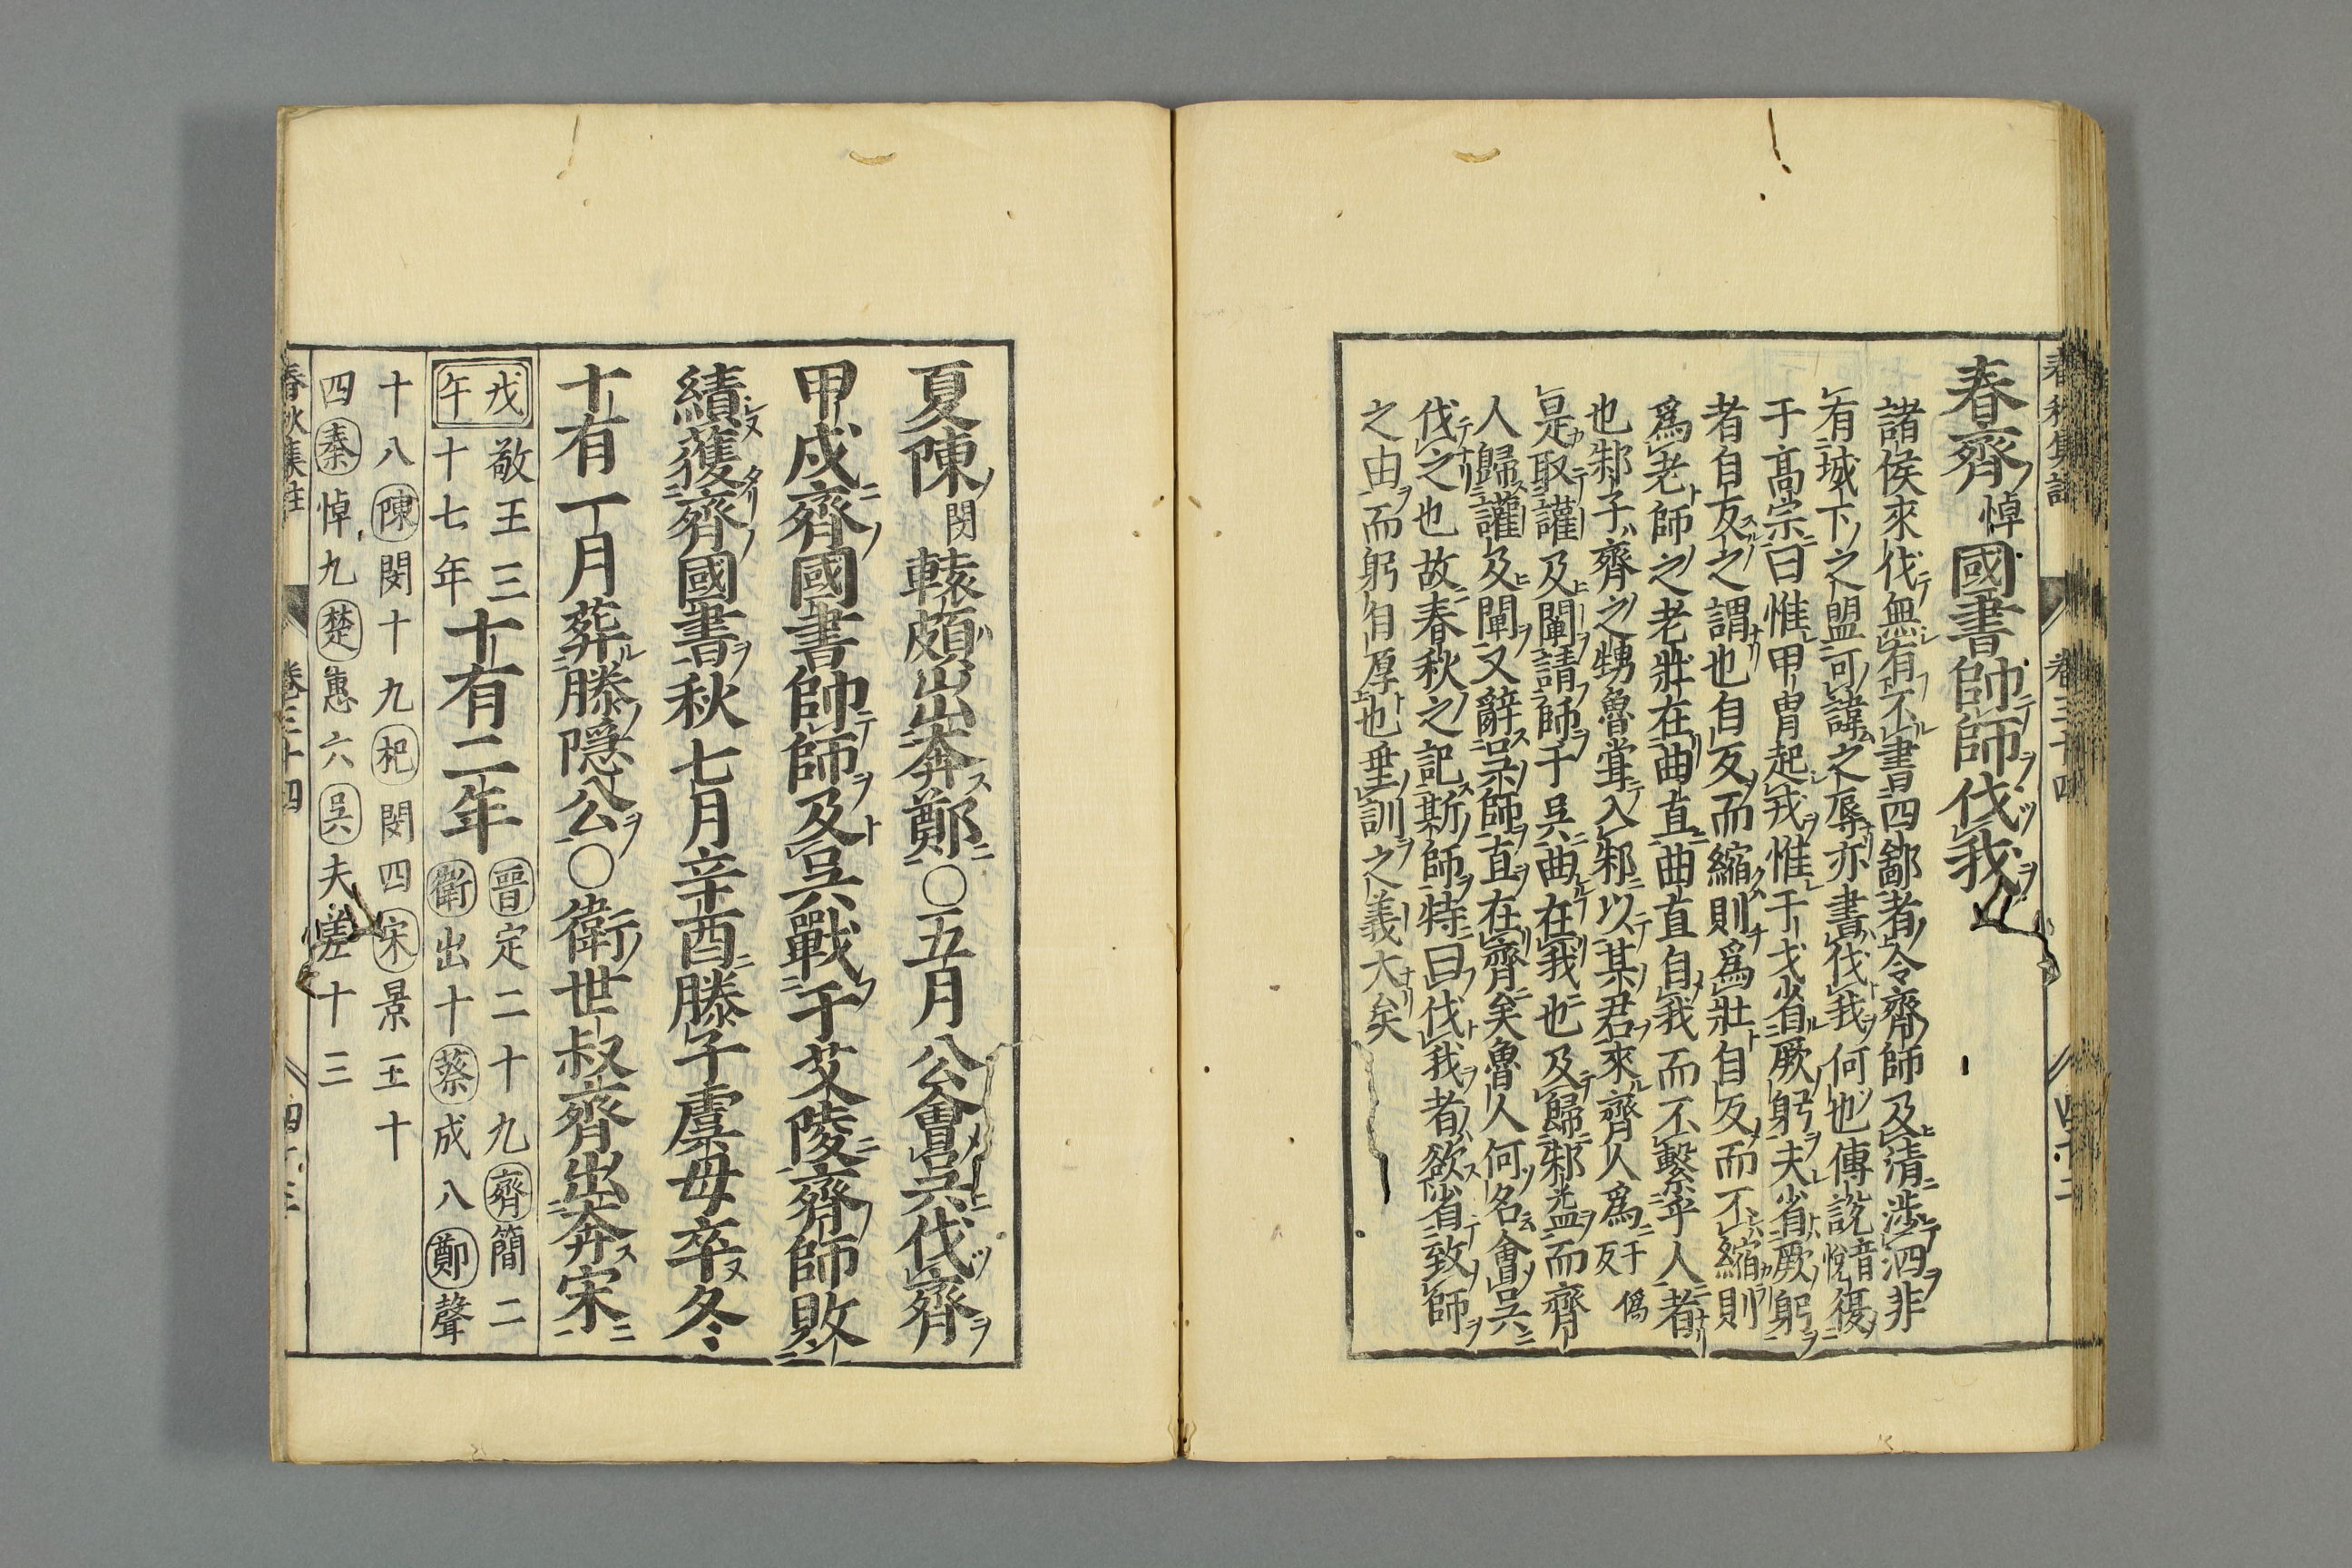 春秋集註 卷三十四 四十二
春齊悼國書帥師伐我
諸侯來伐無有不書四鄙者今齊師及清涉泗非
有城下之盟可諱之辱亦書伐我何也傳說音悅復
于高宗曰惟甲冑起戎惟干戈省厥躬夫省厥躬
者自反之謂也自反而縮則爲壯自反而不縮則
爲老師之老壯在曲直曲直自我而不繫乎人者
也邾子齊之甥魯嘗入邾以某君來齊人爲于僞反
是取讙及闡請師于吳曲在我也及歸邾益而齊
人歸讙及闡又辭吳師直在齊矣魯人何名會吳
伐之也故春秋之記斯師特曰伐我者欲省致師
之由而躬自厚也垂訓之義大矣
夏陳閔轅頗出奔鄭○五月公會吳伐齊
甲戌齊國書帥師及吳戰于艾陵齊師敗
績獲齊國書秋七月辛酉滕子虞母卒冬
十有一月葬滕隱公○衛世叔齊出奔宋
戊午敬王三十七年十有二年晉定二十九齊簡二衛出十蔡成八鄭聲
十八陳閔十九杞閔四宋景三十
四秦悼九楚惠六吳夫差十三
春秋集註 卷三十四 四十三